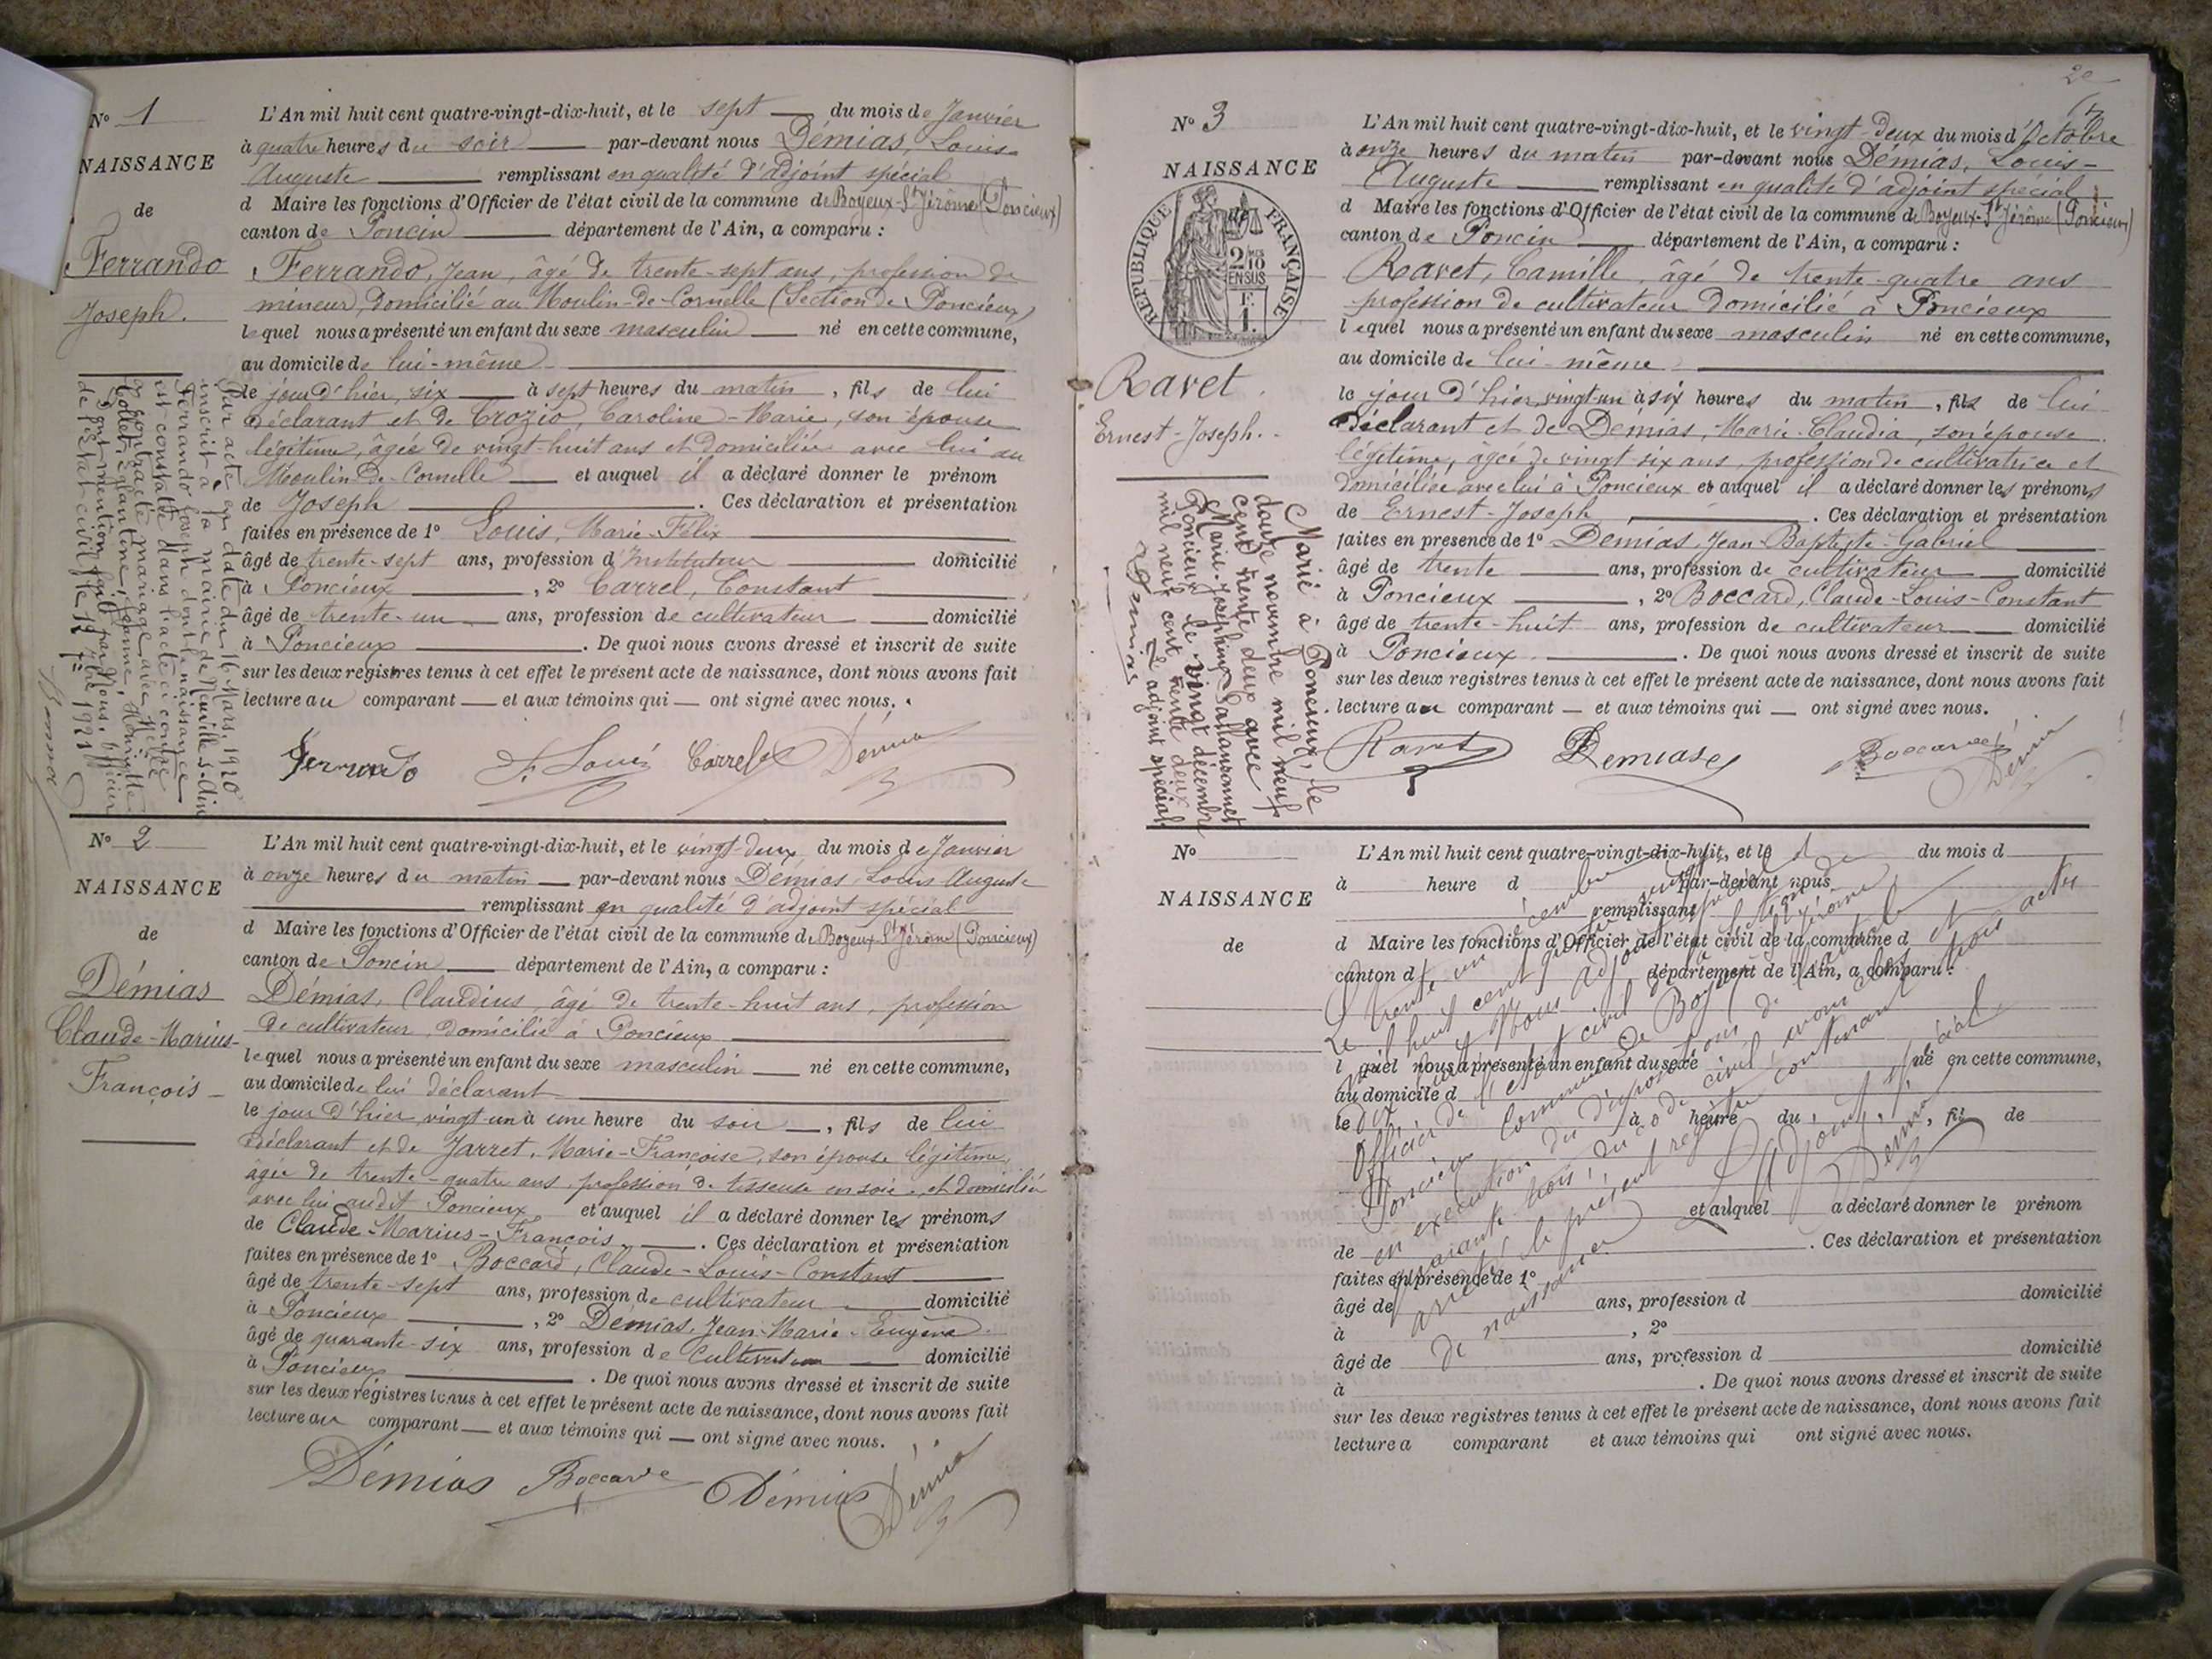 N° 1
NAISSANCE
de
Ferrando
Joseph.
L'An mil huit cent quatre-vingt-dix-huit, et le sept du mois de Janvier
à quatre heures du soir par-devant nous Démias, Louis
Auguste remplissant en qualité d'adjoint spécial
d Maire les fonctions d'Officier de l'état civil de la commune de Boyeux-St Jérôme (Poncieux)
canton de Poncin département de l'Ain, a comparu :
Ferrando, Jean, âgé de trente-sept ans, profession de
mineur, domicilié au Moulin-de-Cornelle (Section de Poncieux)
lequel nous a présenté un enfant du sexe masculin né en cette commune,
au domicile de lui-même
le jour d'hier, six à sept heures du matin, fils de lui
déclarant et de Crozio, Caroline-Marie, son épouse
légitime, âgée de vingt-huit ans et domiciliée avec lui au
Moulin-de-Cornelle et auquel il a déclaré donner le prénom
de Joseph. Ces déclaration et présentation
faites en présence de 1° Louis, Marie-Félix
âgé de trente-sept ans, profession d'Instituteur domicilié
à Poncieux, 2° Carrel, Constant
âgé de trente-un ans, profession de cultivateur domicilié
à Poncieux. De quoi nous avons dressé et inscrit de suite
sur les deux registres tenus à cet effet le présent acte de naissance, dont nous avons fait
lecture au comparant et aux témoins qui ont signé avec nous.
Ferrando F. Louis Carrel Démias
Par acte en date du 16 Mars 1920
inscrit à la mairie de Neuville-s-Ain
Ferrando Joseph dont la naissance
est constatée dans l'acte ci-contre
a contracté mariage avec Melle
Collet Jeanne, Henriette
Dont mention faite par Nous, officier
de l'Etat civil, le 1921
N° 2
NAISSANCE
de
Démias
Claude-Marius-
François
L'An mil huit cent quatre-vingt-dix-huit, et le vingt-deux du mois de Janvier
à onze heures du matin par-devant nous Démias Louis Auguste
remplissant en qualité d'adjoint spécial
d Maire les fonctions d'Officier de l'état civil de la commune de Boyeux-St Jérôme (Poncieux)
canton de Poncin département de l'Ain, a comparu :
Démias, Claudius, âgé de trente-huit ans, profession
de cultivateur, domicilié à Poncieux
lequel nous a présenté un enfant du sexe masculin né en cette commune,
au domicile de lui déclarant
le jour d'hier, vingt-un à une heure du soir, fils de lui
déclarant et de Jarret, Marie-Françoise, son épouse légitime,
âgée de trente-quatre ans, profession de tisseuse en soie, et domiciliée
avec lui audit Poncieux et auquel il a déclaré donner les prénoms
de Claude-Marius-François. Ces déclaration et présentation
faites en présence de 1° Boccard, Claude-Louis-Constant
âgé de trente-sept ans, profession de cultivateur domicilié
à Poncieux, 2° Démias, Jean-Marie-Eugène
âgé de quarante-six ans, profession de cultivateur domicilié
à Poncieux. De quoi nous avons dressé et inscrit de suite
sur les deux registres tenus à cet effet le présent acte de naissance, dont nous avons fait
lecture au comparant et aux témoins qui ont signé avec nous.
Démias Boccard Démias Démias
N° 3
NAISSANCE
de
RÉPUBLIQUE FRANÇAISE
2/10 EN SUS
F. 1.
Ravet
Ernest-Joseph.
L'An mil huit cent quatre-vingt-dix-huit, et le vingt-deux du mois d'Octobre
à onze heures du matin par-devant nous Démias, Louis-
Auguste remplissant en qualité d'adjoint spécial
d Maire les fonctions d'Officier de l'état civil de la commune de Boyeux-St Jérôme (Poncieux)
canton de Poncin département de l'Ain, a comparu :
Ravet, Camille, âgé de trente-quatre ans
profession de cultivateur domicilié à Poncieux
lequel nous a présenté un enfant du sexe masculin né en cette commune,
au domicile de lui-même
le jour d'hier, vingt-un à six heures du matin, fils de lui
déclarant et de Démias, Marie-Claudia, son épouse
légitime, âgée de vingt-six ans, profession de cultivatrice et
domiciliée avec lui à Poncieux et auquel il a déclaré donner les prénoms
de Ernest-Joseph. Ces déclaration et présentation
faites en présence de 1° Démias, Jean-Baptiste-Gabriel
âgé de trente ans, profession de cultivateur domicilié
à Poncieux, 2° Boccard, Claude-Louis-Constant
âgé de trente-huit ans, profession de cultivateur domicilié
à Poncieux. De quoi nous avons dressé et inscrit de suite
sur les deux registres tenus à cet effet le présent acte de naissance, dont nous avons fait
lecture au comparant et aux témoins qui ont signé avec nous.
Ravet Demias Boccard Démias
Marié à Poncieux, le
douze novembre mil neuf
cent trente deux avec
Marie-Joséphine
Poncieux le vingt décembre
mil neuf cent trente deux
L'adjoint spécial
Démias
N°
NAISSANCE
de
L'An mil huit cent quatre-vingt-dix-huit, et le du mois d
à heure d par-devant nous
remplissant
d Maire les fonctions d'Officier de l'état civil de la commune d
canton d département de l'Ain, a comparu :
l quel nous a présenté un enfant du sexe né en cette commune,
au domicile d
le à heure du, fil de
et auquel a déclaré donner le prénom
de. Ces déclaration et présentation
faites en présence de 1°
âgé de ans, profession d domicilié
à, 2°
âgé de ans, profession d domicilié
à. De quoi nous avons dressé et inscrit de suite
sur les deux registres tenus à cet effet le présent acte de naissance, dont nous avons fait
lecture a comparant et aux témoins qui ont signé avec nous.
Le trente-un décembre
mil huit cent quatre vingt
dix huit Nous adjoint spécial
Officier de l'état civil de la section de
Poncieux commune de Boyeux St Jérôme
en exécution du dispositions de l'article
quarante trois du code civil, avons clos et
arrêté le présent registre contenant trois actes
de naissance
L'Adjoint spécial
Démias